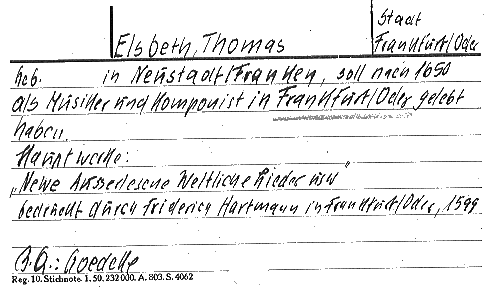 Stadt
Elsbeth, Thomas Frankfurt/Oder
geb. in Neustadt/Franken, soll nach 1650
als Musiker und Komponist in Frankfurt/Oder gelebt
haben.
Hauptwerke:
„Newe Ausserlesene Weltliche Lieder usw"
gedruckt durch Friderich Hartmann in Frankfurt/Oder, 1599
B.A.: Goedeke
Reg. 10. Stichnote. 1. 50. 232000. A. 803. S. 4062